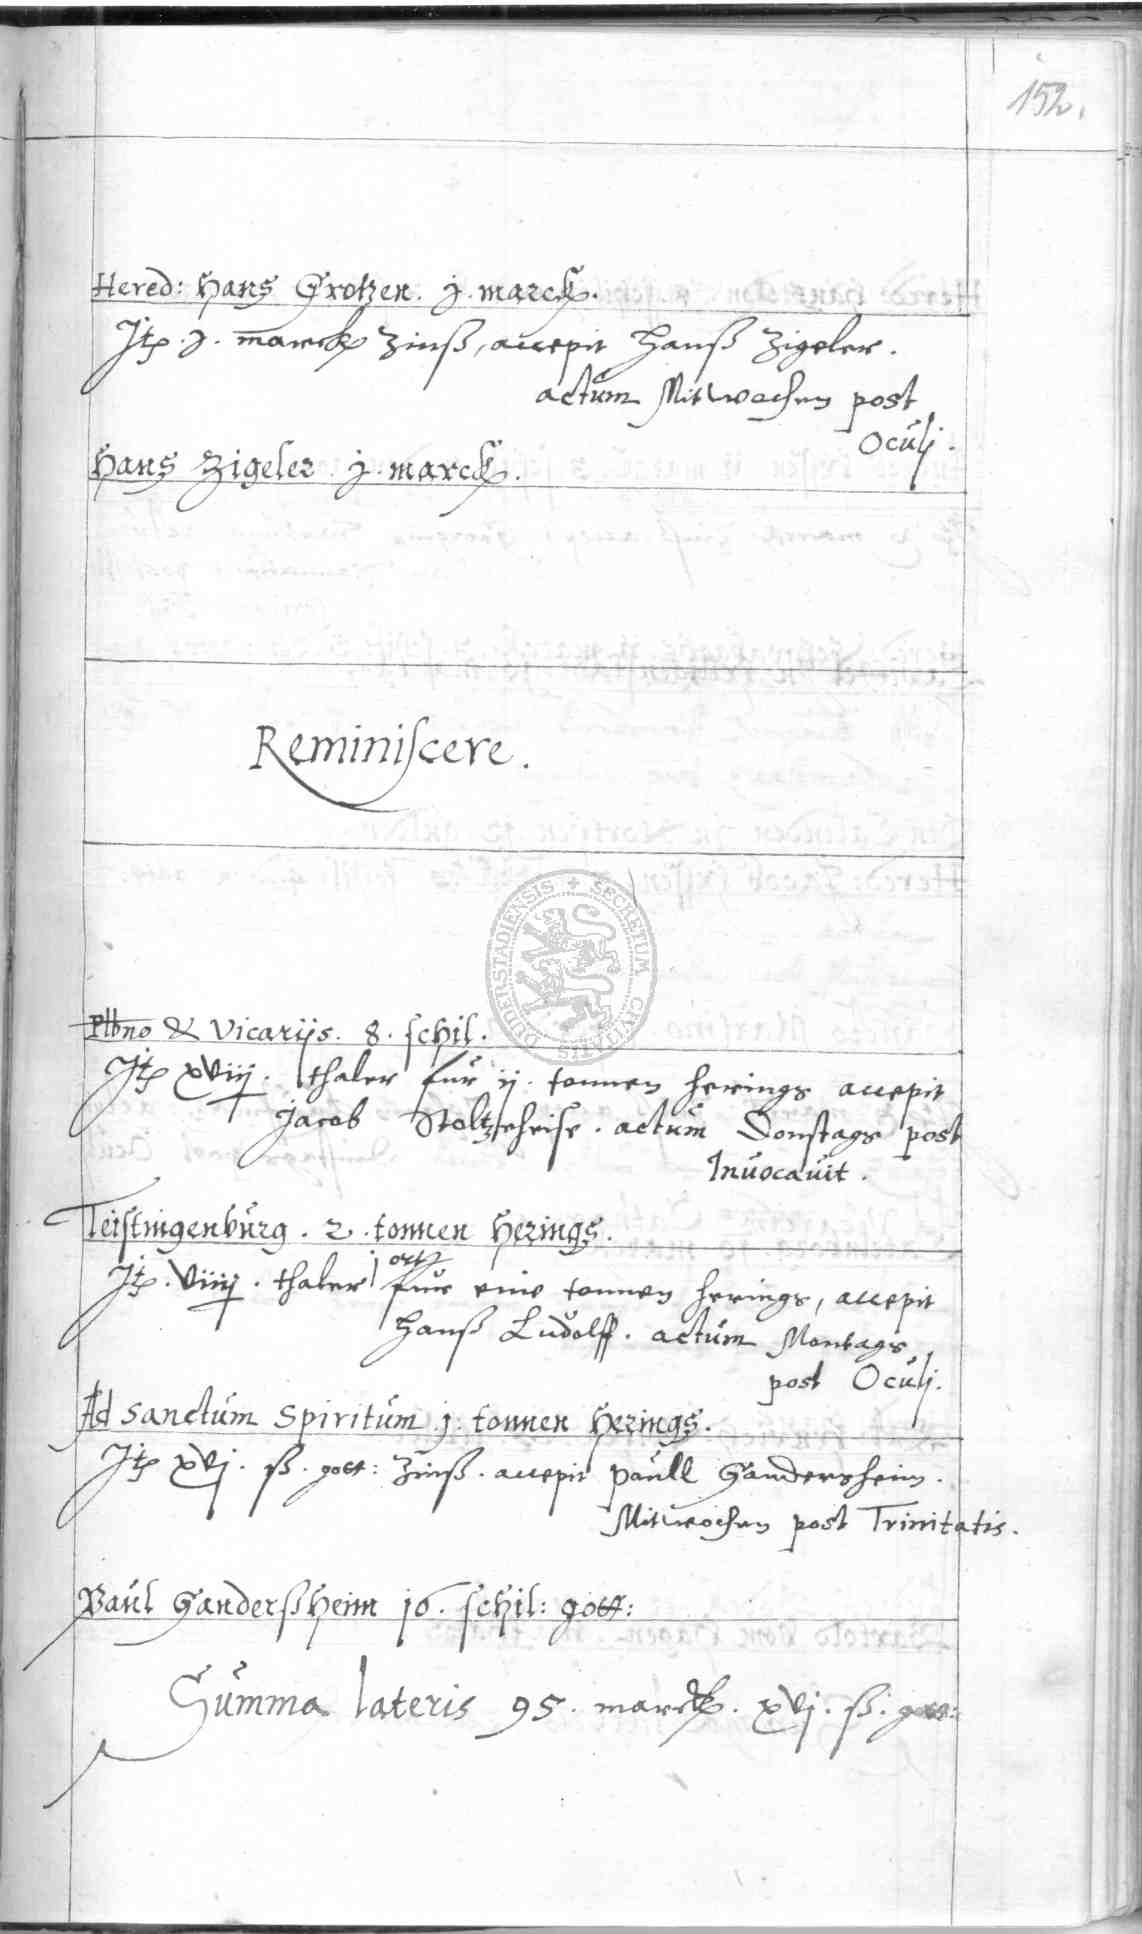 152.
Hered: Hans Grotzen. j. marck.
Jt. j. marck Zinß, accepit Hanß Zigeler.
actum Mitwochen post
Oculj.
Hans Zigeler j marck.
Reminiscere.
Plbno & Vicarijs. 8. schil.
Jt xviij. thaler für ij. tonnen herings accepit
Jacob Donstags post
Inuocauit.
Teistingenburg. 2. tonnen herings.
Jt. viiij. thaler j ort für eine tonnen herings, accepit
Hanß Ludolff. actum Montags
post Oculj.
Ad sanctum Spiritum j. tonnen herings.
Jt xvj. ß. gott: Zinß. accepit paull Gandersheim.
Mitwochen post Trinitatis.
Paul Ganderßheim 16. schil: gott:
Summa lateris 95. marck. xvj. ß. gott:
DUDERSTADIENSIS + SECRETUM CIVITATIS